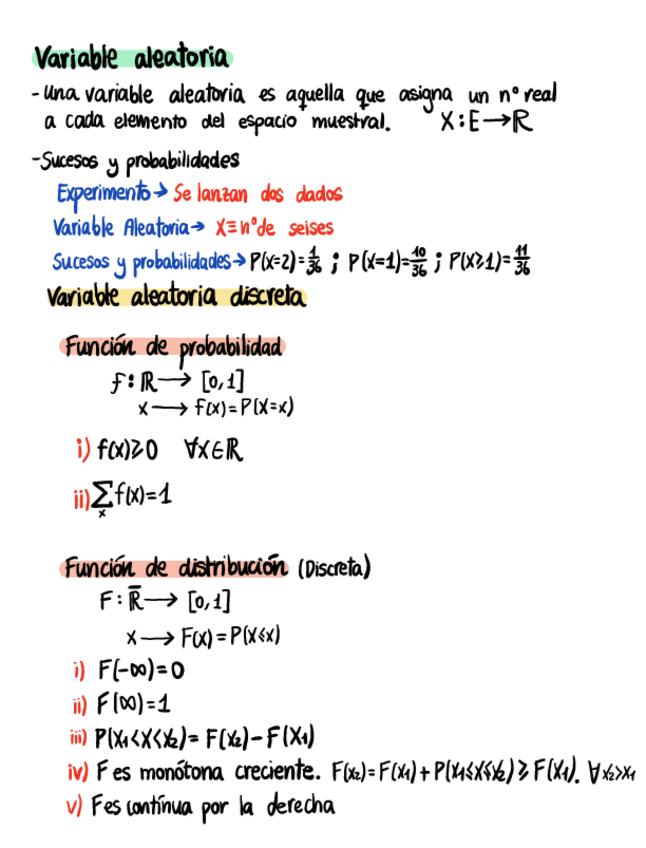 Variable aleatoria
- Una variable aleatoria es aquella que asigna un nº real
a cada elemento del espacio muestral. X:E→ℝ
- Sucesos y probabilidades
Experimento → Se lanzan dos dados
Variable Aleatoria → X≡nº de seises
Sucesos y probabilidades → P(x=2)=1/36 ; P(x=1)=10/36 ; P(X≥1)=11/36
Variable aleatoria discreta
Función de probabilidad
f:ℝ→[0,1]
x→f(x)=P(X=x)
i) f(x)≥0 ∀x∈ℝ
ii) ∑ₓ f(x)=1
Función de distribución (Discreta)
F:ℝ̅→[0,1]
x→F(x)=P(X≤x)
i) F(-∞)=0
ii) F(∞)=1
iii) P(x₁<X<x₂)=F(x₂)-F(x₁)
iv) F es monótona creciente. F(x₂)=F(x₁)+P(x₁≤X≤x₂)≥F(x₁). ∀x₂>x₁
v) F es contínua por la derecha